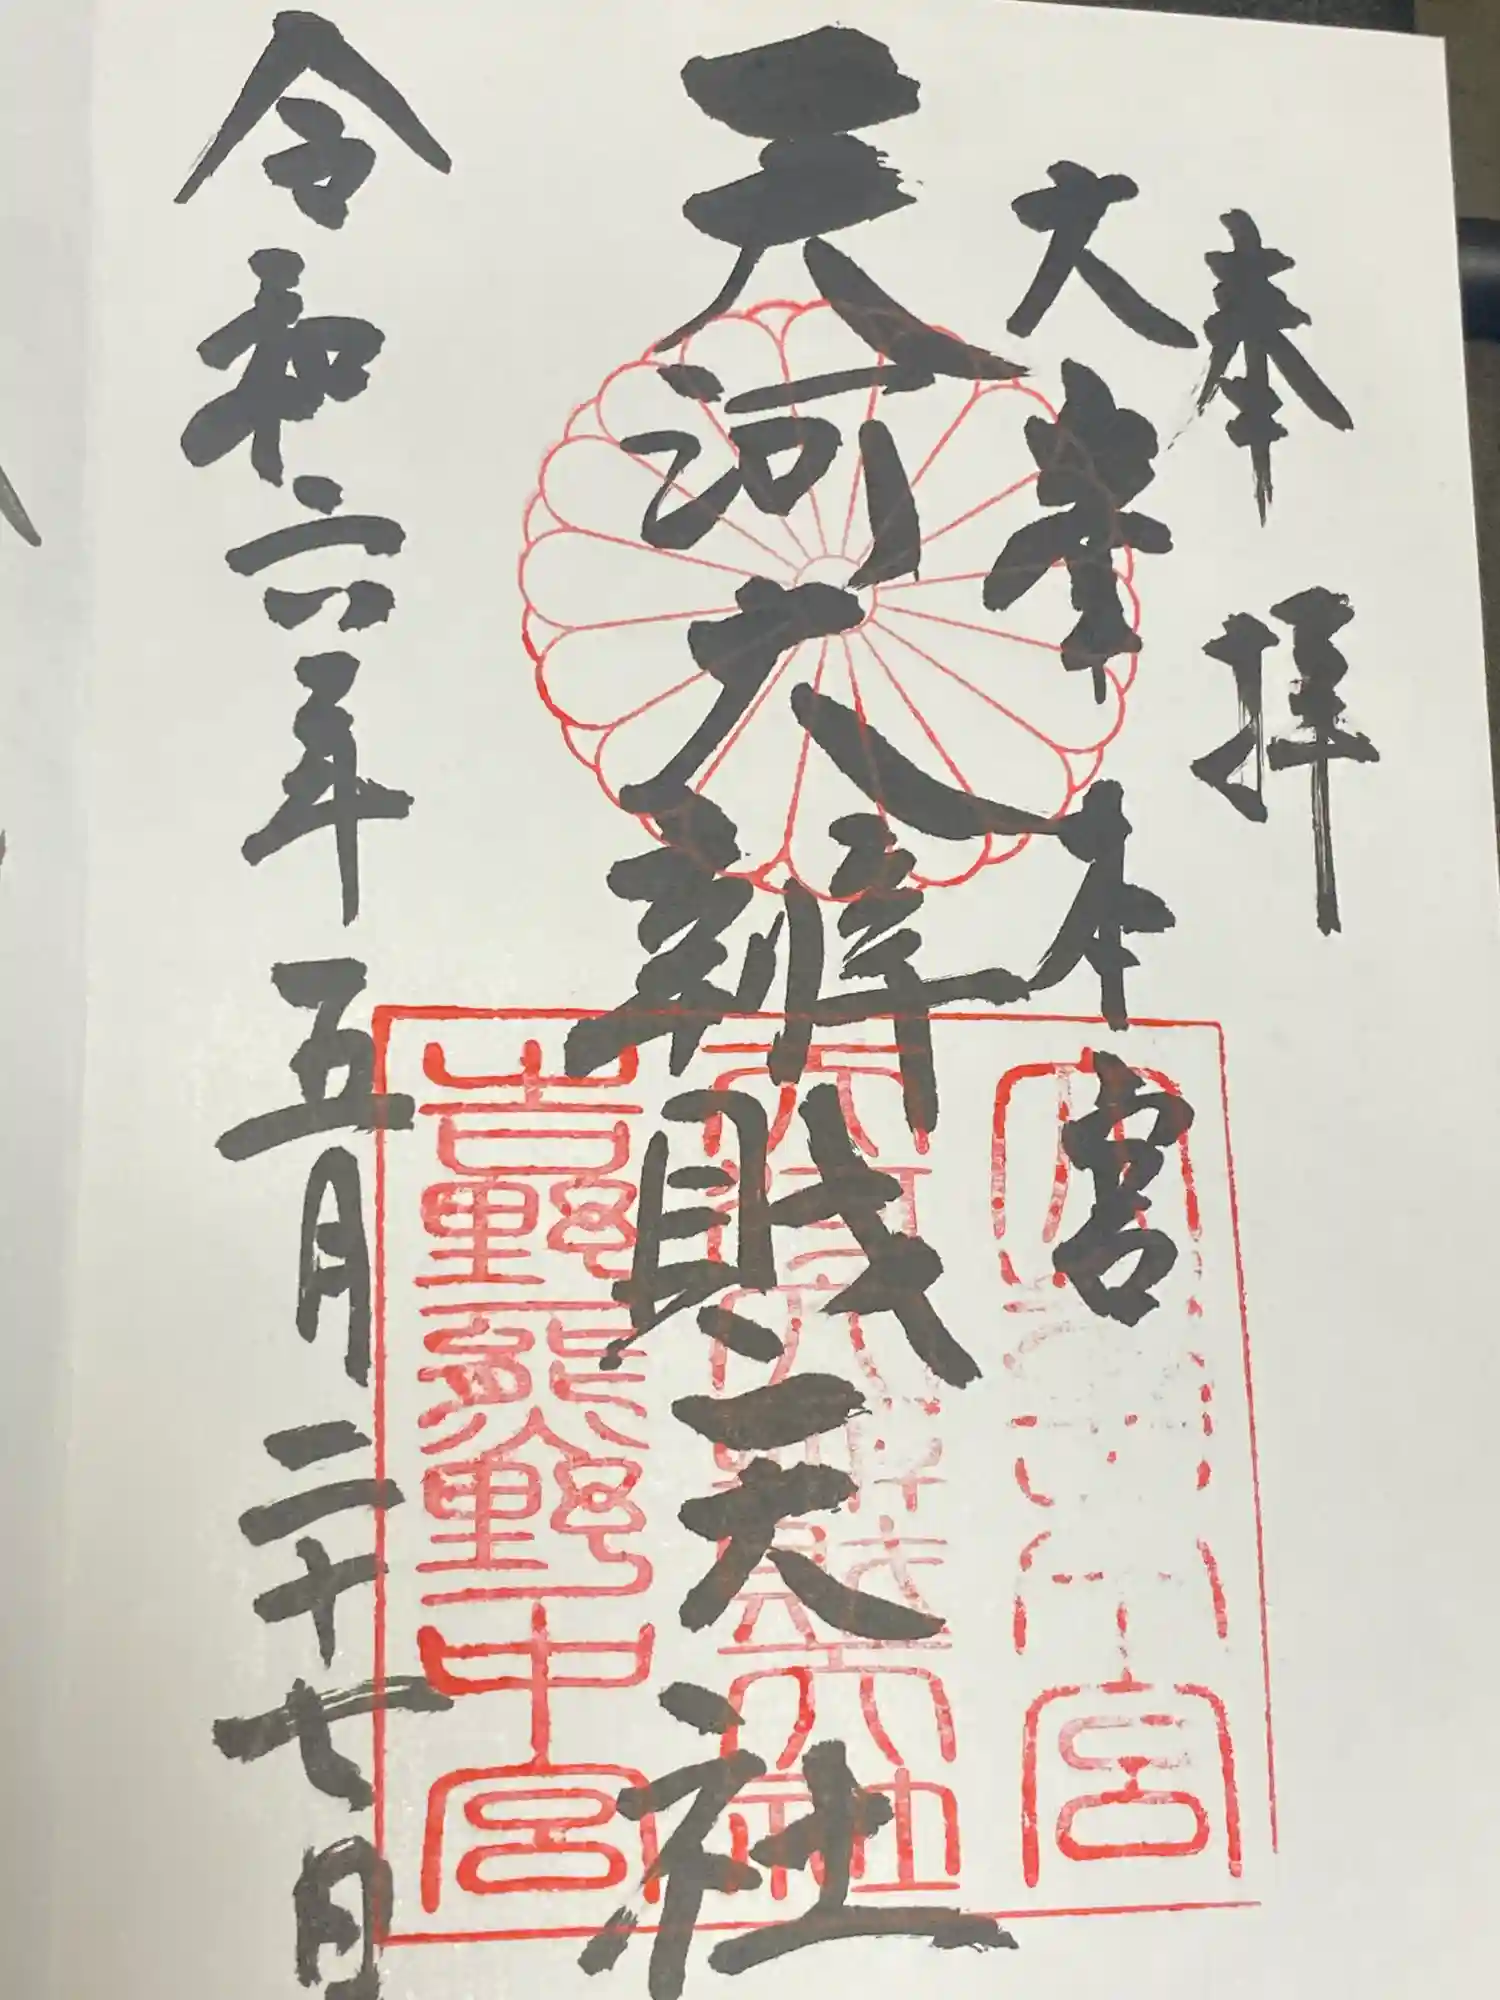 奉拝
大峯本宮
天河大辨財天社
令和六年五月二十七日
天河大辨財天社
吉野熊野中宮